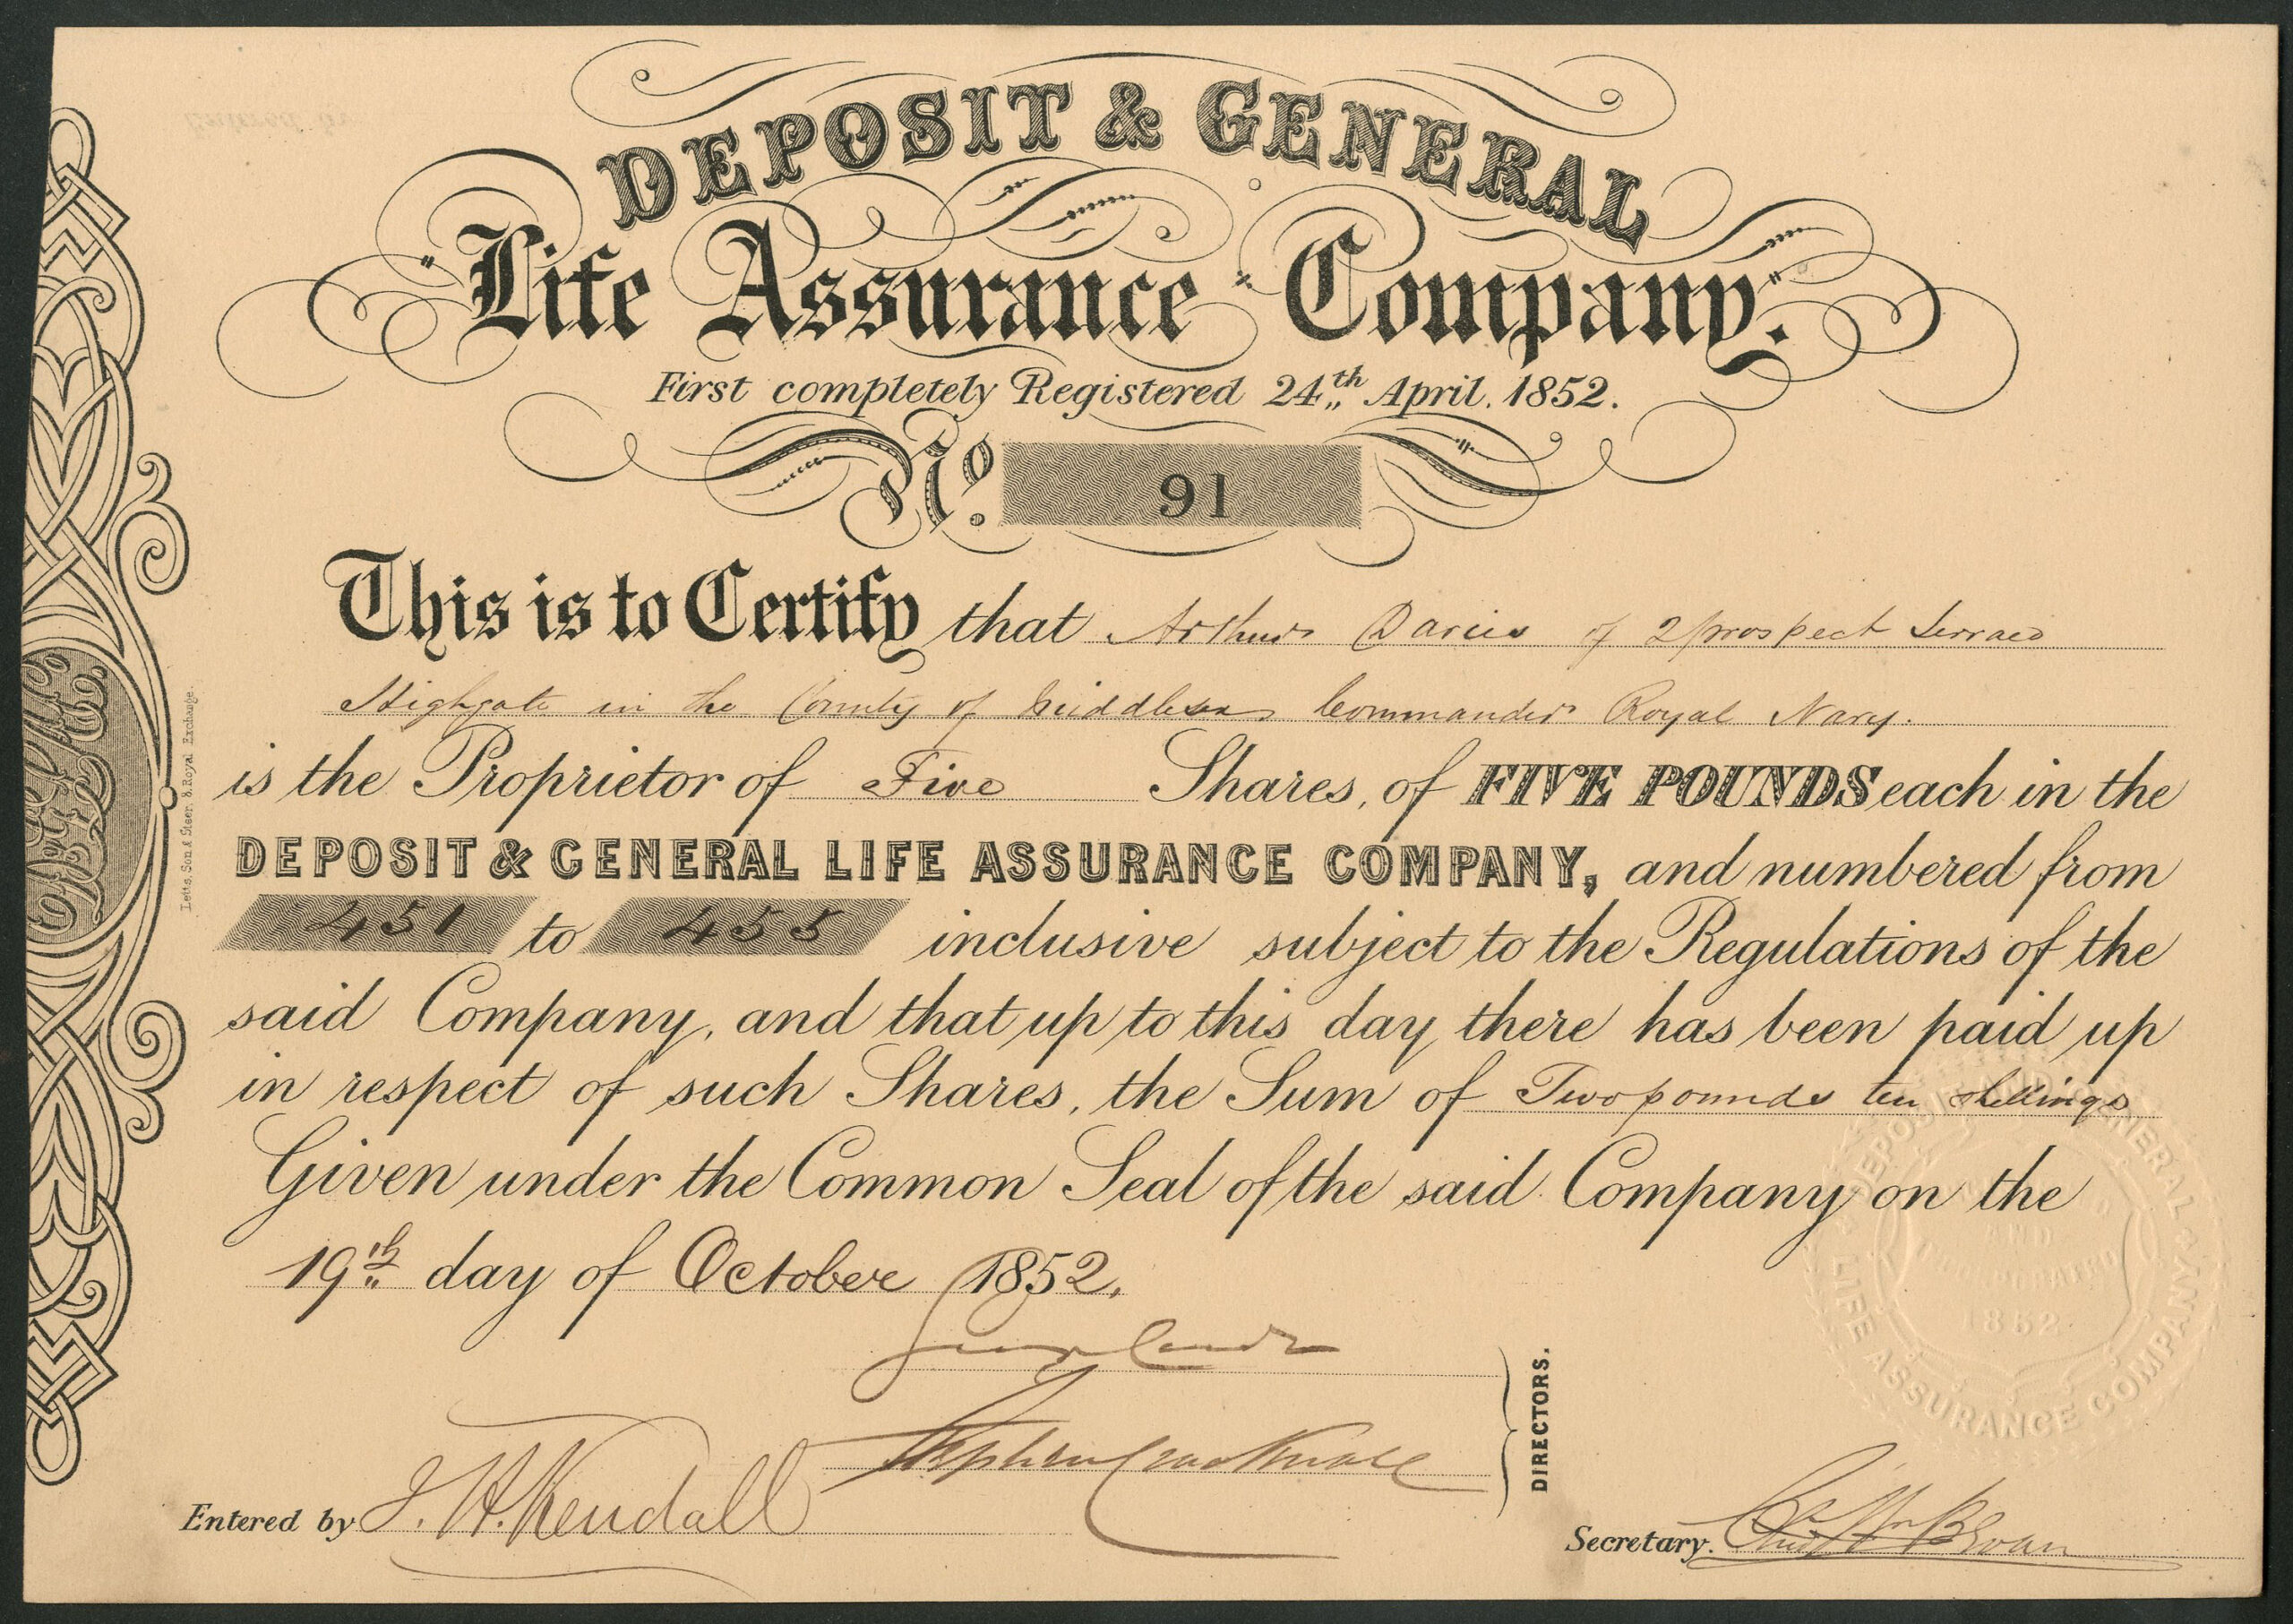 DEPOSIT & GENERAL
"Life Assurance" Company".
First completely Registered 24th April. 1852.
No. 91
This is to Certify that Arthur Darius of 2 prospect Terrace
Highgate in the County of Middlesex Commander Royal Navy.
is the Proprietor of Five Shares, of FIVE POUNDS each in the
DEPOSIT & GENERAL LIFE ASSURANCE COMPANY, and numbered from
451 to 455 inclusive subject to the Regulations of the
said Company, and that up to this day there has been paid up
in respect of such Shares, the Sum of Two pounds ten shillings
Given under the Common Seal of the said Company on the
19th day of October 1852.
DIRECTORS.
Entered by J. H. Kendall
Secretary.
Letts, Son & Steer. 8. Royal Exchange.
DEPOSIT AND GENERAL
LIFE ASSURANCE COMPANY
AND
1852